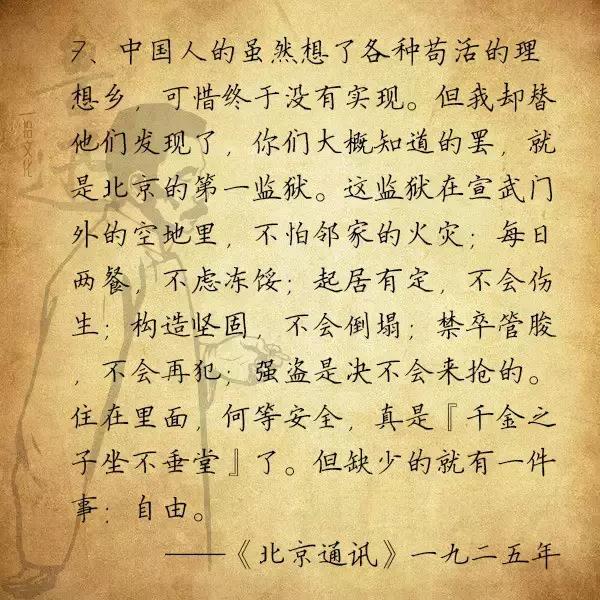 7、中国人的虽然想了各种苟活的理
想乡，可惜终于没有实现。但我却替
他们发现了，你们大概知道的罢，就
是北京的第一监狱。这监狱在宣武门
外的空地里，不怕邻家的火灾；每日
两餐，不虑冻馁；起居有定，不会伤
生；构造坚固，不会倒塌；禁卒管胶
，不会再犯；强盗是决不会来抢的。
住在里面，何等安全，真是『千金之
子坐不垂堂』了。但缺少的就有一件
事：自由。
——《北京通讯》一九二五年